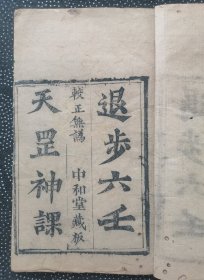 退步六壬
校正無譌
中和堂藏板
天罡神課